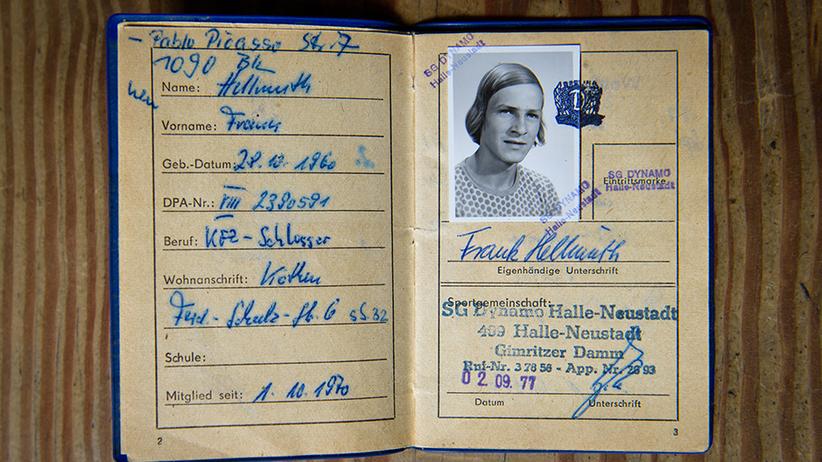 - Pablo Picasso Str. 7
1090 Bln
neu
Name: Hellmuth
Vorname: Frank
Geb.-Datum: 28. 12. 1960
DPA-Nr.: VIII 2390591
Beruf: KFZ-Schlosser
Wohnanschrift: Köthen
Schule:
Mitglied seit: 1. 10. 1970
2
SG DYNAMO
Halle-Neustadt
D
SG DYNAMO
Halle-Neustadt
Eintrittsmarke
SG DYNAMO
Halle-Neustadt
Frank Hellmuth
Eigenhändige Unterschrift
Sportgemeinschaft:
SG Dynamo Halle-Neustadt
409 Halle-Neustadt
Gimritzer Damm
Ruf-Nr. 3 78 56 - App. Nr. 26 93
02. 09. 77
Datum Unterschrift
3